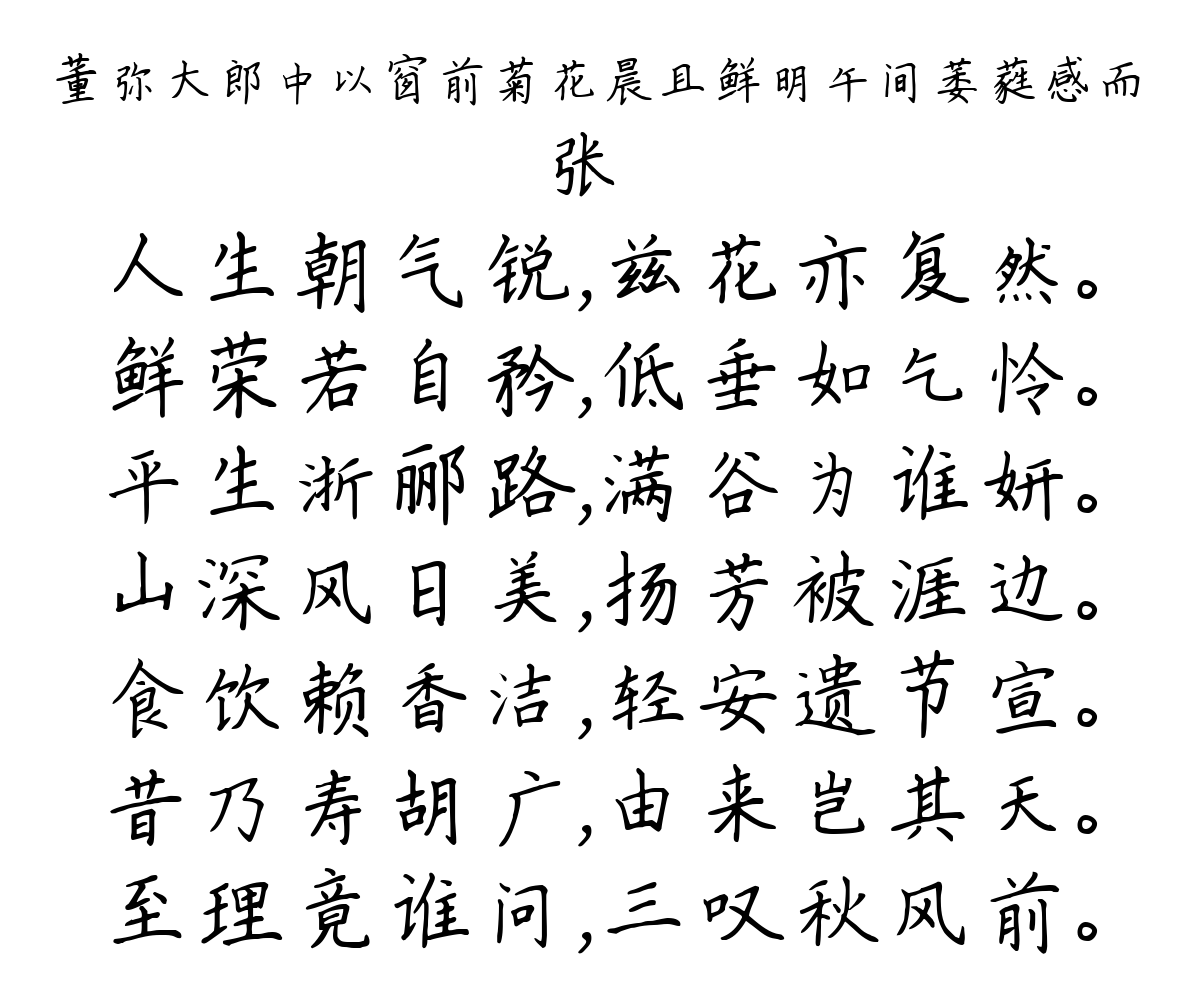 董弥大郎中以窗前菊花晨且鲜明午间萎蕤感而
张
人生朝气锐,兹花亦复然。
鲜荣若自矜,低垂如乞怜。
平生浙郦路,满谷为谁妍。
山深风日美,扬芳被涯边。
食饮赖香洁,轻安遗节宣。
昔乃寿胡广,由来岂其天。
至理竟谁问,三叹秋风前。